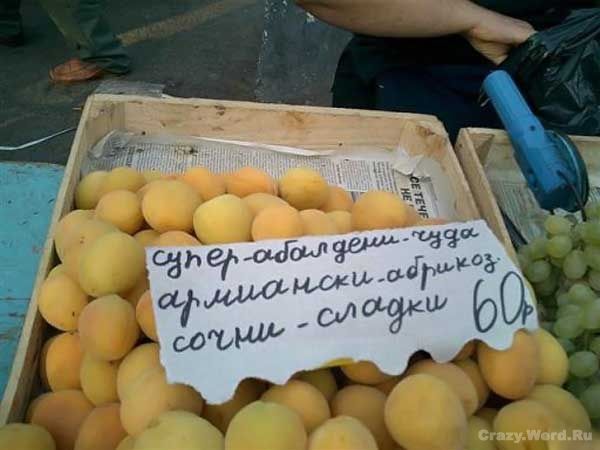 супер-абалдени-чуда
армиански-абрикоз.
сочни-сладки 60р
Crazy.Word.Ru